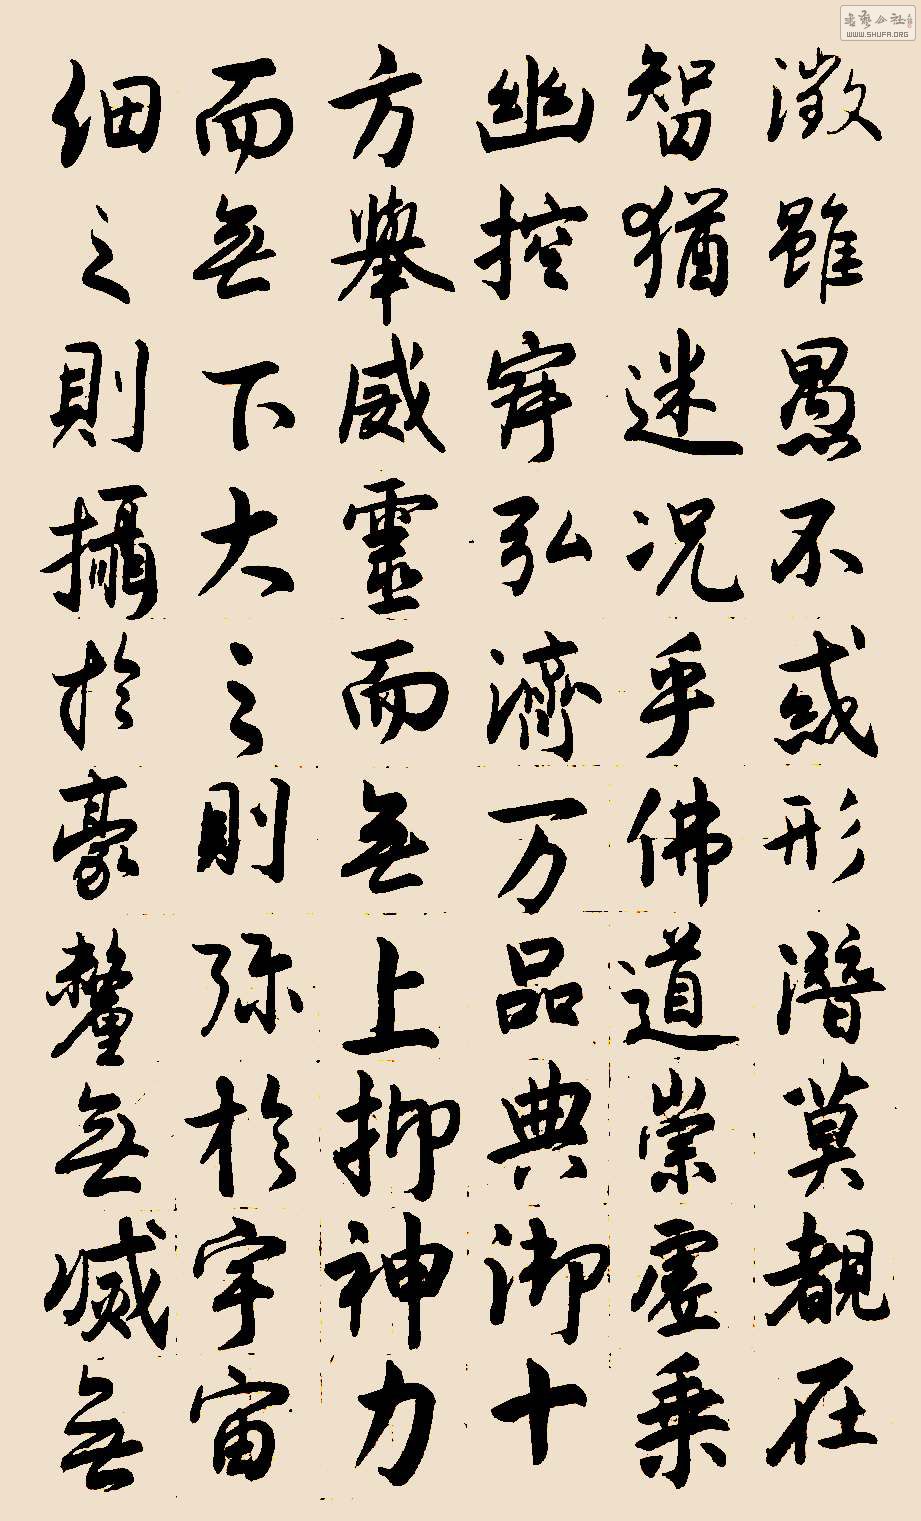 澂雖愚不惑形潛莫覩在
智猶迷况乎佛道崇虛乗
幽控寂弘濟万品典御十
方舉威靈而無上抑神力
而無下大之則弥於宇宙
細之則攝於豪釐無滅無
WWW.SHUFA.ORG